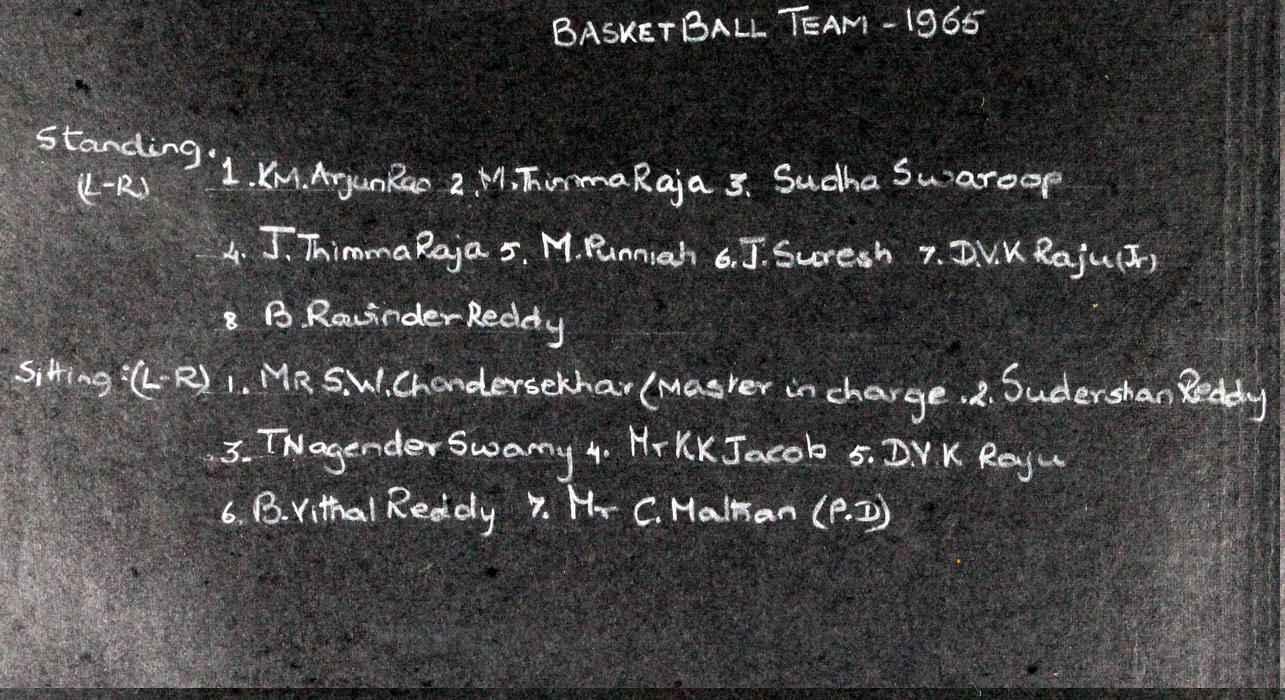 BASKETBALL TEAM - 1965
Standing. 1. KM. Arjun Rao 2. M. Thimma Raja 3. Sudha Swaroop
(L-R)
4. J. Thimma Raja 5. M. Punniah 6. J. Suresh 7. D.V.K Raju (Jr)
8 B. Ravinder Reddy
Sitting: (L-R) 1. MR S.W. Chandersekhar (Master in charge . 2. Sudershan Reddy
3. T Nagender Swamy 4. Mr KK Jacob 5. D.V K Raju
6. B. Vithal Reddy 7. Mr C. (P.D)